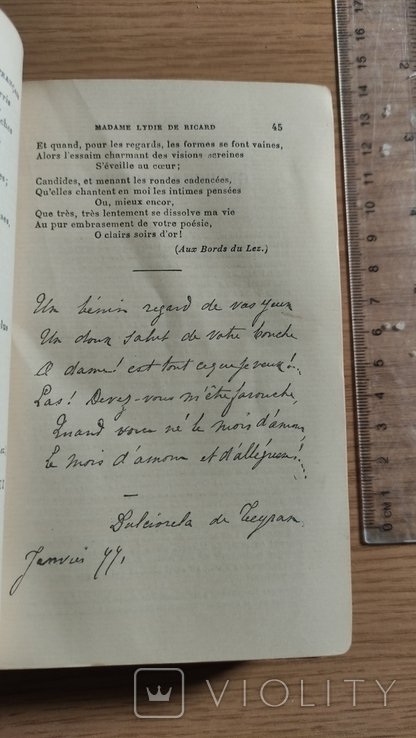 MADAME LYDIE DE RICARD 45
Et quand, pour les regards, les formes se font vaines,
Alors l'essaim charmant des visions sereines
S'éveille au cœur;
Candides, et menant les rondes cadencées,
Qu'elles chantent en moi les intimes pensées
Ou, mieux encor,
Que très, très lentement se dissolve ma vie
Au pur embrasement de votre poésie,
O clairs soirs d'or!
(Aux Bords du Lez.)
Un bénin regard de vos yeux
Un doux salut de votre bouche
O dame! est tout ce que je veux!..
Las! Devez-vous m'être farouche,
Quand voici né le mois d'amour
Le mois d'amour et d'allégresse!
de Teyran
Janvier 99,
0 CM 1 2 3 4 5 6 7 8 9 10 11 12 13 14 15 16 17
VIOLITY